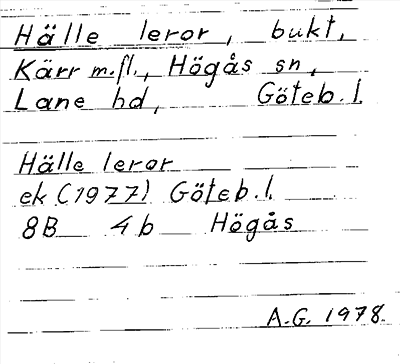 Hälle leror, bukt,
Kärr m.fl., Högås sn,
Lane hd, Göteb. l.
Hälle leror
ek (1977) Göteb. l.
8B 4b Högås
A.G. 1978.